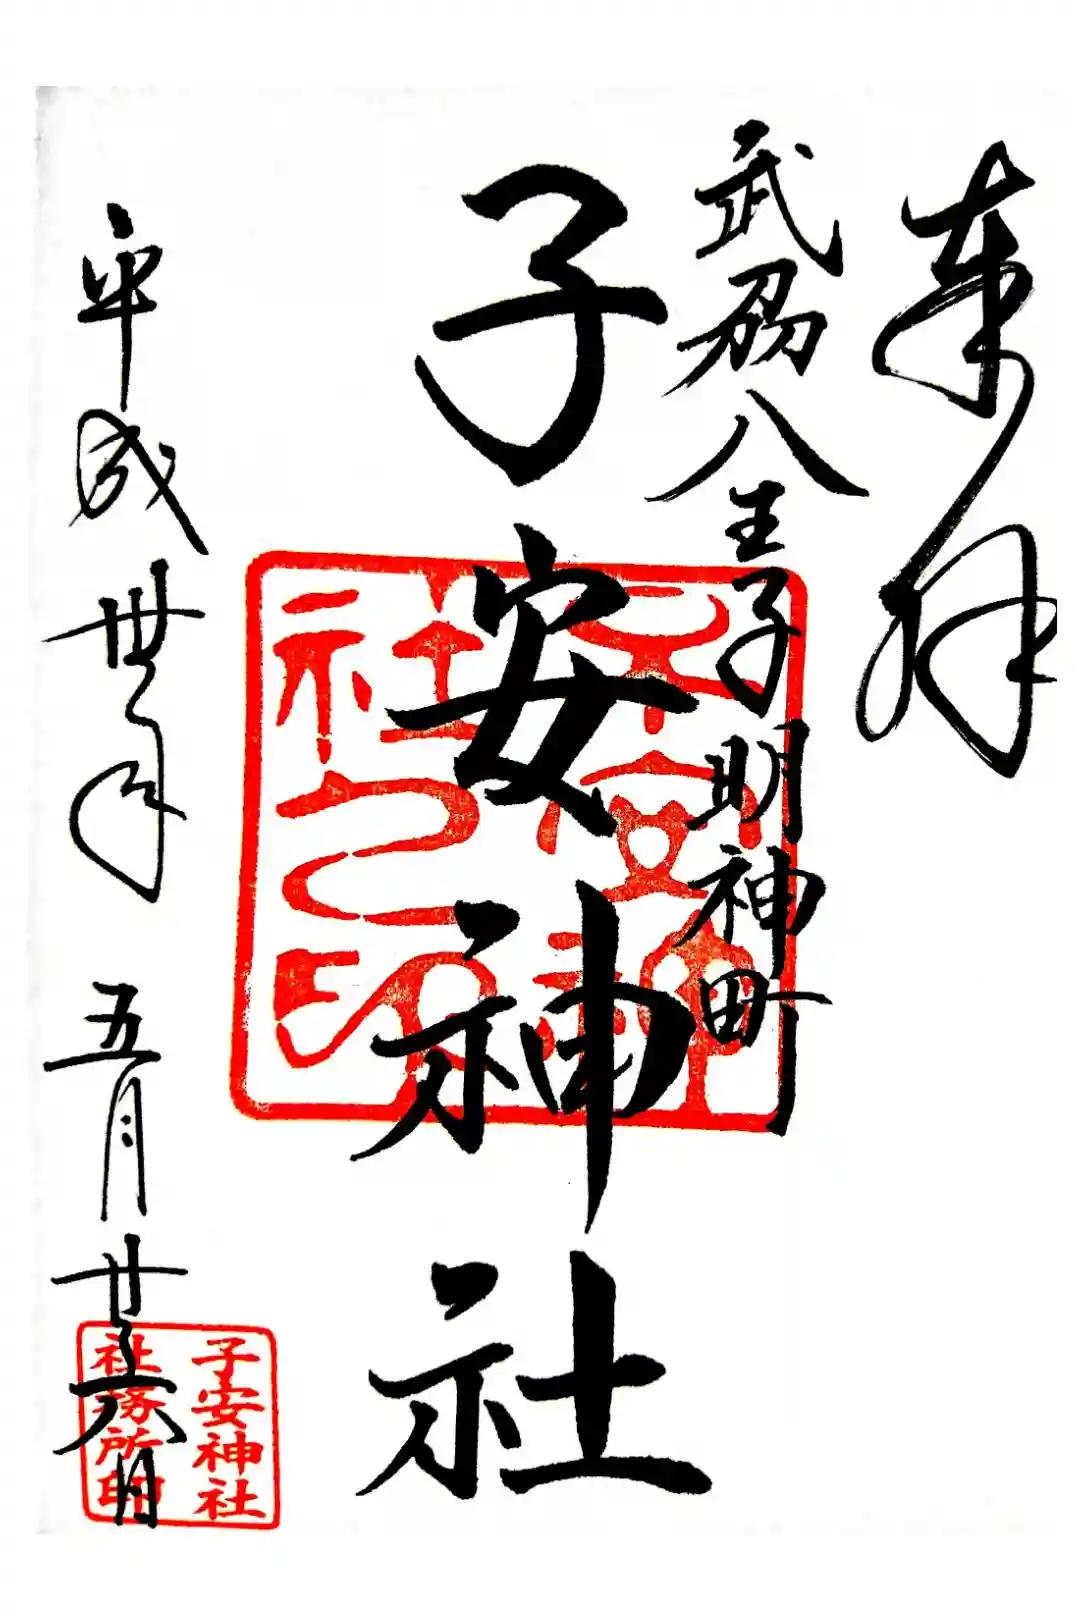 奉拝
武刕八王子明神町
子安神社
平成卅年五月廿六日
子安神
社之印
子安神社
社務所印